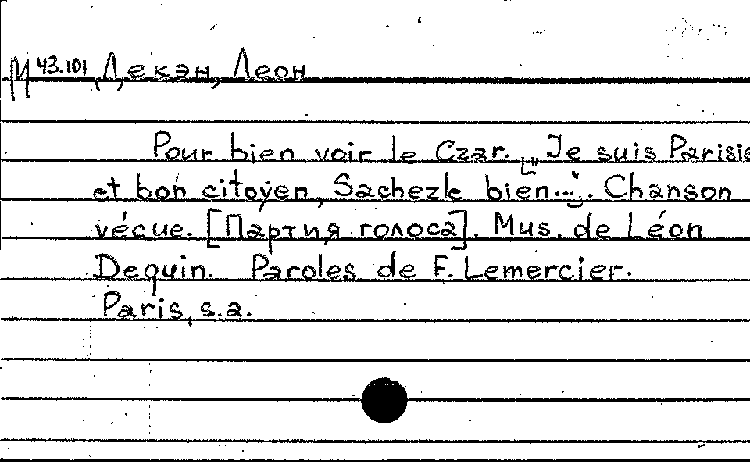 М 43.101 Декэн, Леон
Pour bien voir le Czar. „Je suis Parisie
et bon citoyen, Sachezle bien...". Chanson
vécue. [Партия голоса]. Mus. de Léon
Dequin. Paroles de F. Lemercier.
Paris, s.a.